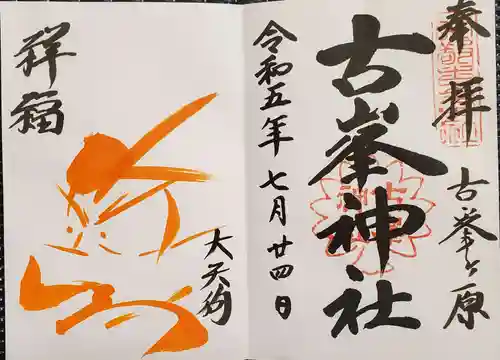 奉拝
古峯ヶ原
古峯神社
令和五年七月廿四日
祥福
大天狗